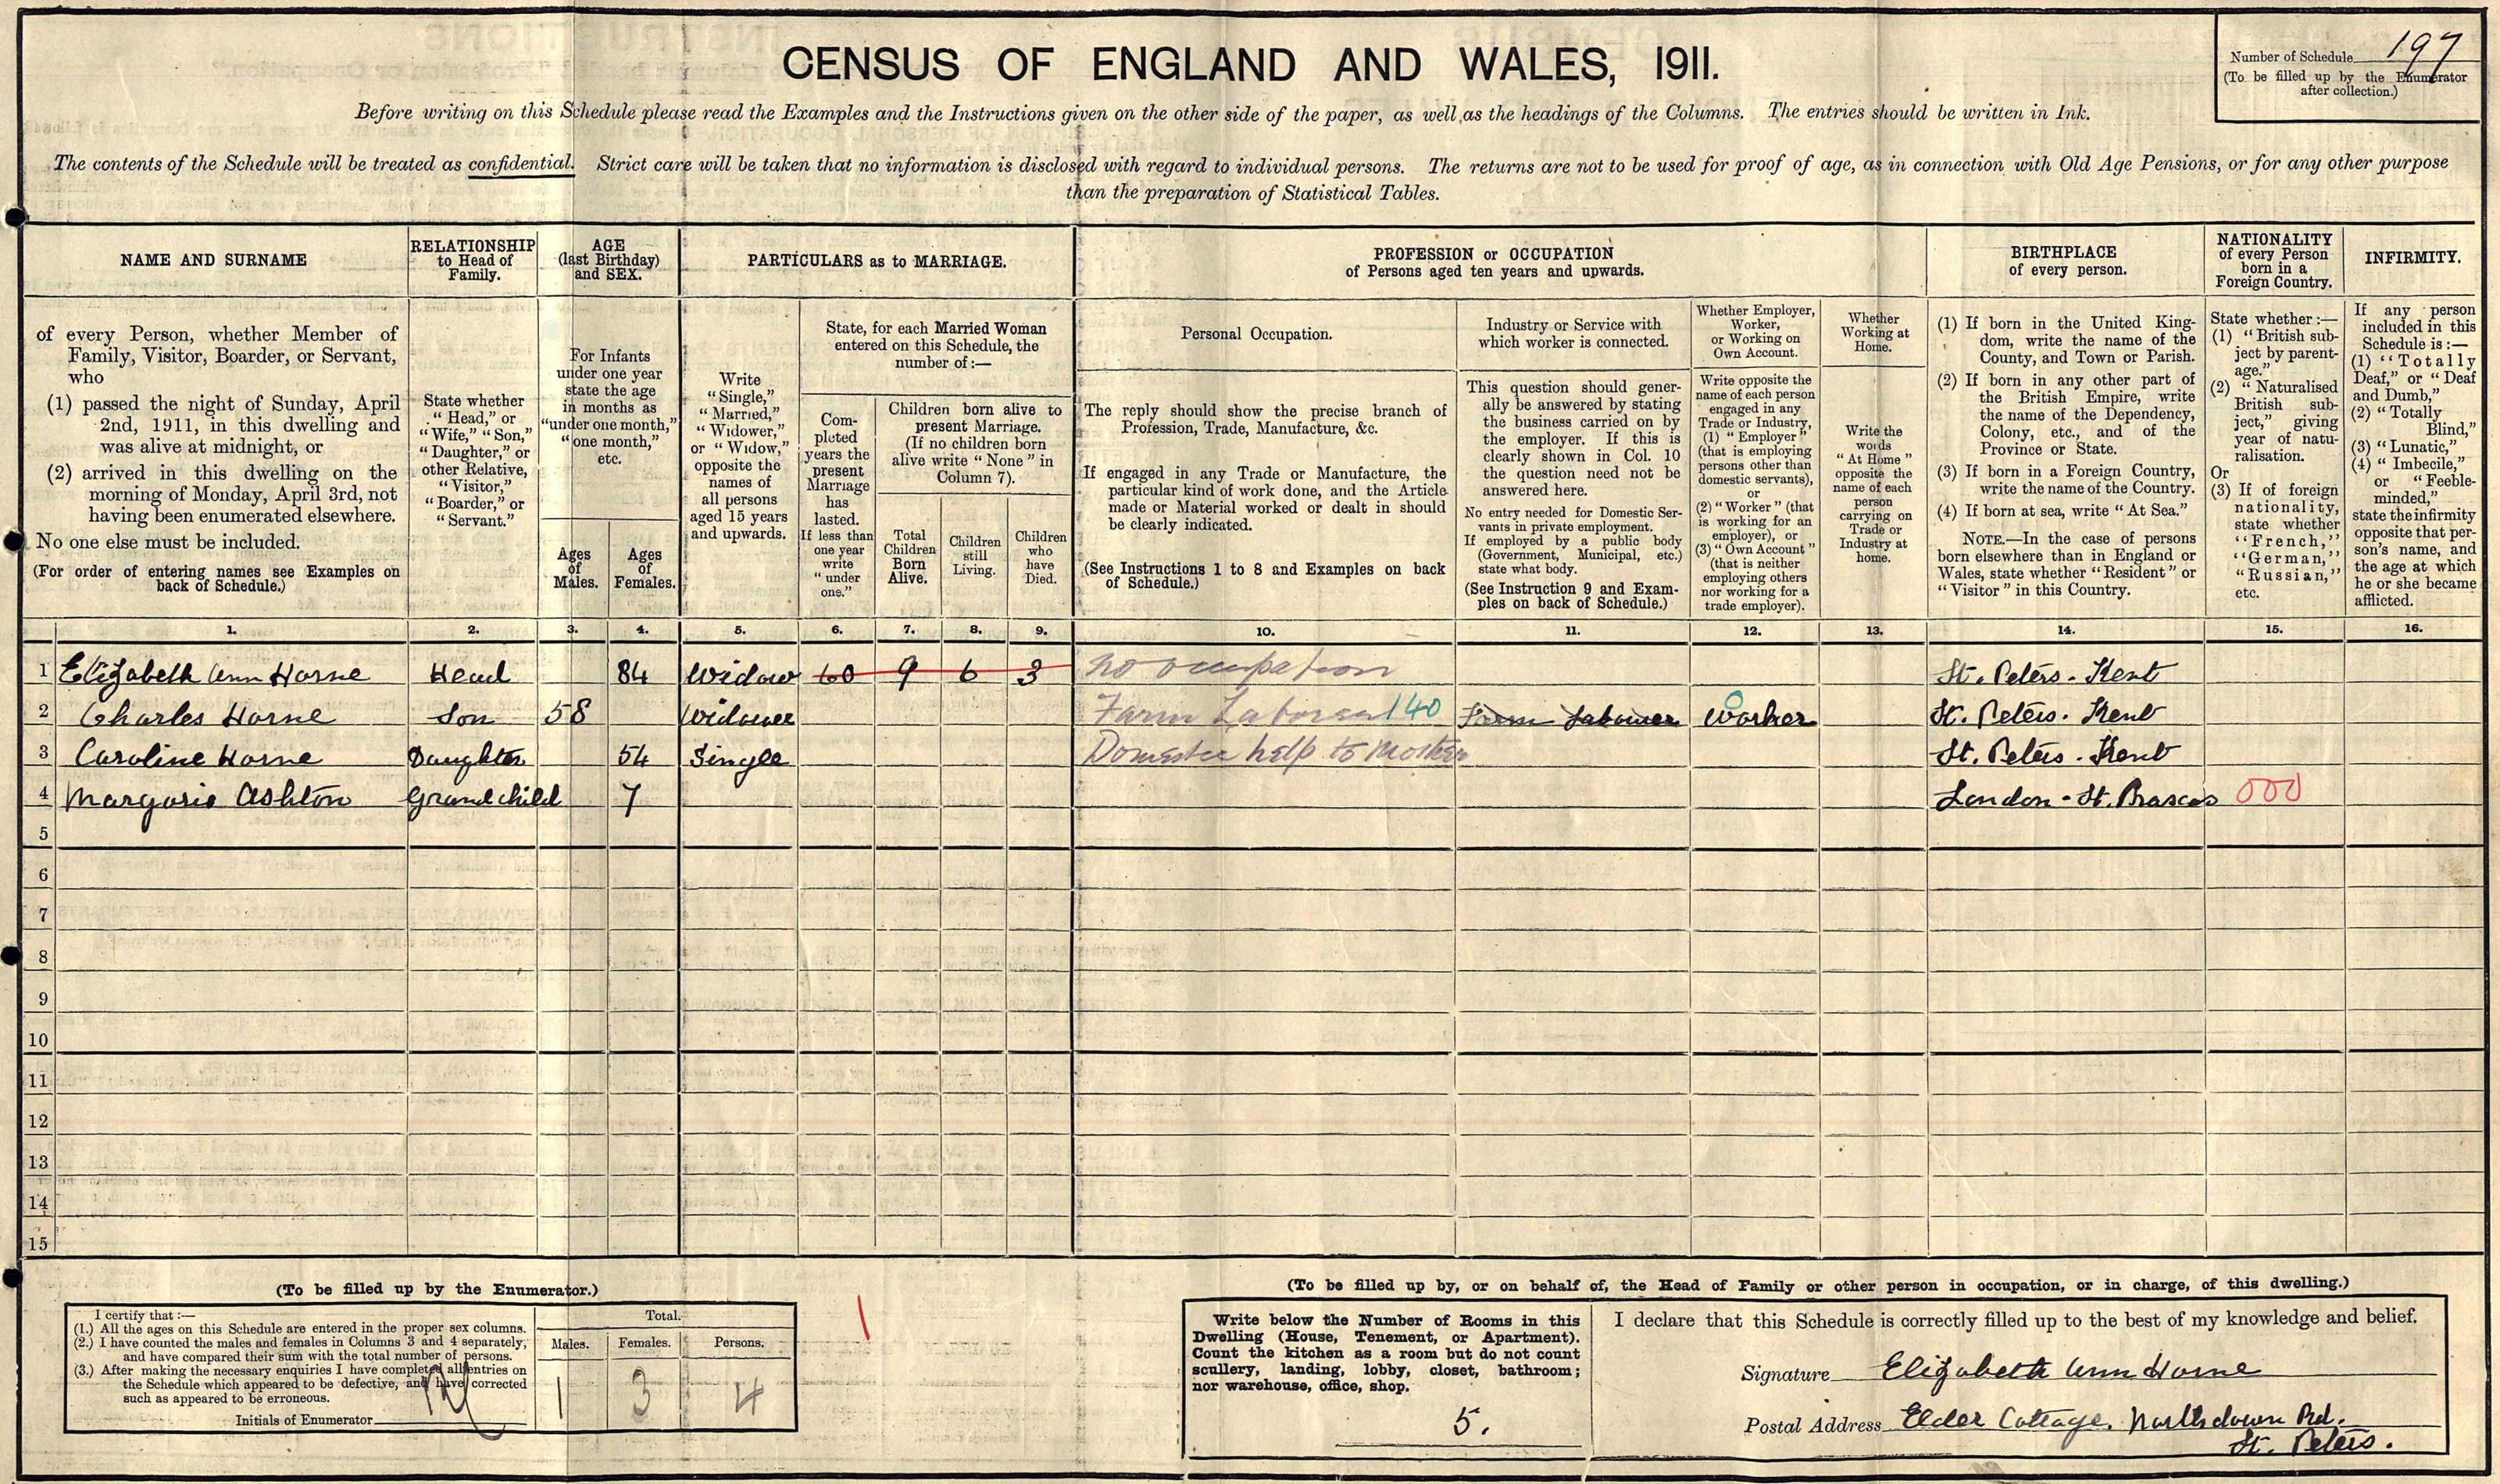 CENSUS OF ENGLAND AND WALES, 1911.
Number of Schedule 197
(To be filled up by the Enumerator
after collection.)
Before writing on this Schedule please read the Examples and the Instructions given on the other side of the paper, as well as the headings of the Columns. The entries should be written in Ink.
The contents of the Schedule will be treated as confidential. Strict care will be taken that no information is disclosed with regard to individual persons. The returns are not to be used for proof of age, as in connection with Old Age Pensions, or for any other purpose
than the preparation of Statistical Tables.
NAME AND SURNAME
of every Person, whether Member of
Family, Visitor, Boarder, or Servant,
who
(1) passed the night of Sunday, April
2nd, 1911, in this dwelling and
was alive at midnight, or
(2) arrived in this dwelling on the
morning of Monday, April 3rd, not
having been enumerated elsewhere.
No one else must be included.
(For order of entering names see Examples on
back of Schedule.)
RELATIONSHIP
to Head of
Family.
State whether
"Head," or
"Wife," "Son,"
"Daughter," or
other Relative,
"Visitor,"
"Boarder," or
"Servant."
AGE
(last Birthday)
and SEX.
For Infants
under one year
state the age
in months as
"under one month,"
"one month,"
etc.
Ages
of
Males.
Ages
of
Females.
PARTICULARS as to MARRIAGE.
Write
"Single,"
"Married,"
"Widower,"
or "Widow,"
opposite the
names of
all persons
aged 15 years
and upwards.
State, for each Married Woman
entered on this Schedule, the
number of:—
Com-
pleted
years the
present
Marriage
has
lasted.
If less than
one year
write
"under
one."
Children born alive to
present Marriage.
(If no children born
alive write "None" in
Column 7).
Total
Children
Born
Alive.
Children
still
Living.
Children
who
have
Died.
PROFESSION or OCCUPATION
of Persons aged ten years and upwards.
Personal Occupation.
The reply should show the precise branch of
Profession, Trade, Manufacture, &c.
If engaged in any Trade or Manufacture, the
particular kind of work done, and the Article
made or Material worked or dealt in should
be clearly indicated.
(See Instructions 1 to 8 and Examples on back
of Schedule.)
Industry or Service with
which worker is connected.
This question should gener-
ally be answered by stating
the business carried on by
the employer. If this is
clearly shown in Col. 10
the question need not be
answered here.
No entry needed for Domestic Ser-
vants in private employment.
If employed by a public body
(Government, Municipal, etc.)
state what body.
(See Instruction 9 and Exam-
ples on back of Schedule.)
Whether Employer,
Worker,
or Working on
Own Account.
Write opposite the
name of each person
engaged in any
Trade or Industry,
(1) "Employer"
(that is employing
persons other than
domestic servants),
or
(2) "Worker" (that
is working for an
employer), or
(3) "Own Account"
(that is neither
employing others
nor working for a
trade employer).
Whether
Working at
Home.
Write the
words
"At Home"
opposite the
name of each
person
carrying on
Trade or
Industry at
home.
BIRTHPLACE
of every person.
(1) If born in the United King-
dom, write the name of the
County, and Town or Parish.
(2) If born in any other part of
the British Empire, write
the name of the Dependency,
Colony, etc., and of the
Province or State.
(3) If born in a Foreign Country,
write the name of the Country.
(4) If born at sea, write "At Sea."
NOTE.—In the case of persons
born elsewhere than in England or
Wales, state whether "Resident" or
"Visitor" in this Country.
NATIONALITY
of every Person
born in a
Foreign Country.
State whether:—
(1) "British sub-
ject by parent-
age."
(2) "Naturalised
British sub-
ject," giving
year of natu-
ralisation.
Or
(3) If of foreign
nationality,
state whether
"French,"
"German,"
"Russian,"
etc.
INFIRMITY.
If any person
included in this
Schedule is:—
(1) "Totally
Deaf," or "Deaf
and Dumb,"
(2) "Totally
Blind,"
(3) "Lunatic,"
(4) "Imbecile,"
or "Feeble-
minded,"
state the infirmity
opposite that per-
son's name, and
the age at which
he or she became
afflicted.
1. 2. 3. 4. 5. 6. 7. 8. 9. 10. 11. 12. 13. 14. 15. 16.
1 Elizabeth Ann Horne Head 84 Widow 60 9 6 3 No occupation St. Peters - Kent
2 Charles Horne Son 58 Widower Farm Laborer 140 Farm Labourer Worker 0 St. Peters. Kent
3 Caroline Horne Daughter 54 Single Domestic help to Mother St. Peters. Kent
4 Margorie Ashton Grandchild 7 London - St. Prascas 000
5
6
7
8
9
10
11
12
13
14
15
(To be filled up by the Enumerator.)
I certify that:—
(1.) All the ages on this Schedule are entered in the proper sex columns.
(2.) I have counted the males and females in Columns 3 and 4 separately,
and have compared their sum with the total number of persons.
(3.) After making the necessary enquiries I have completed all entries on
the Schedule which appeared to be defective, and have corrected
such as appeared to be erroneous.
Initials of Enumerator
Total.
Males. Females. Persons.
1 3 4
(To be filled up by, or on behalf of, the Head of Family or other person in occupation, or in charge, of this dwelling.)
Write below the Number of Rooms in this
Dwelling (House, Tenement, or Apartment).
Count the kitchen as a room but do not count
scullery, landing, lobby, closet, bathroom;
nor warehouse, office, shop.
5.
I declare that this Schedule is correctly filled up to the best of my knowledge and belief.
Signature Elizabeth Ann Horne
Postal Address Elder Cottage. Northdown Rd.
St. Peters.